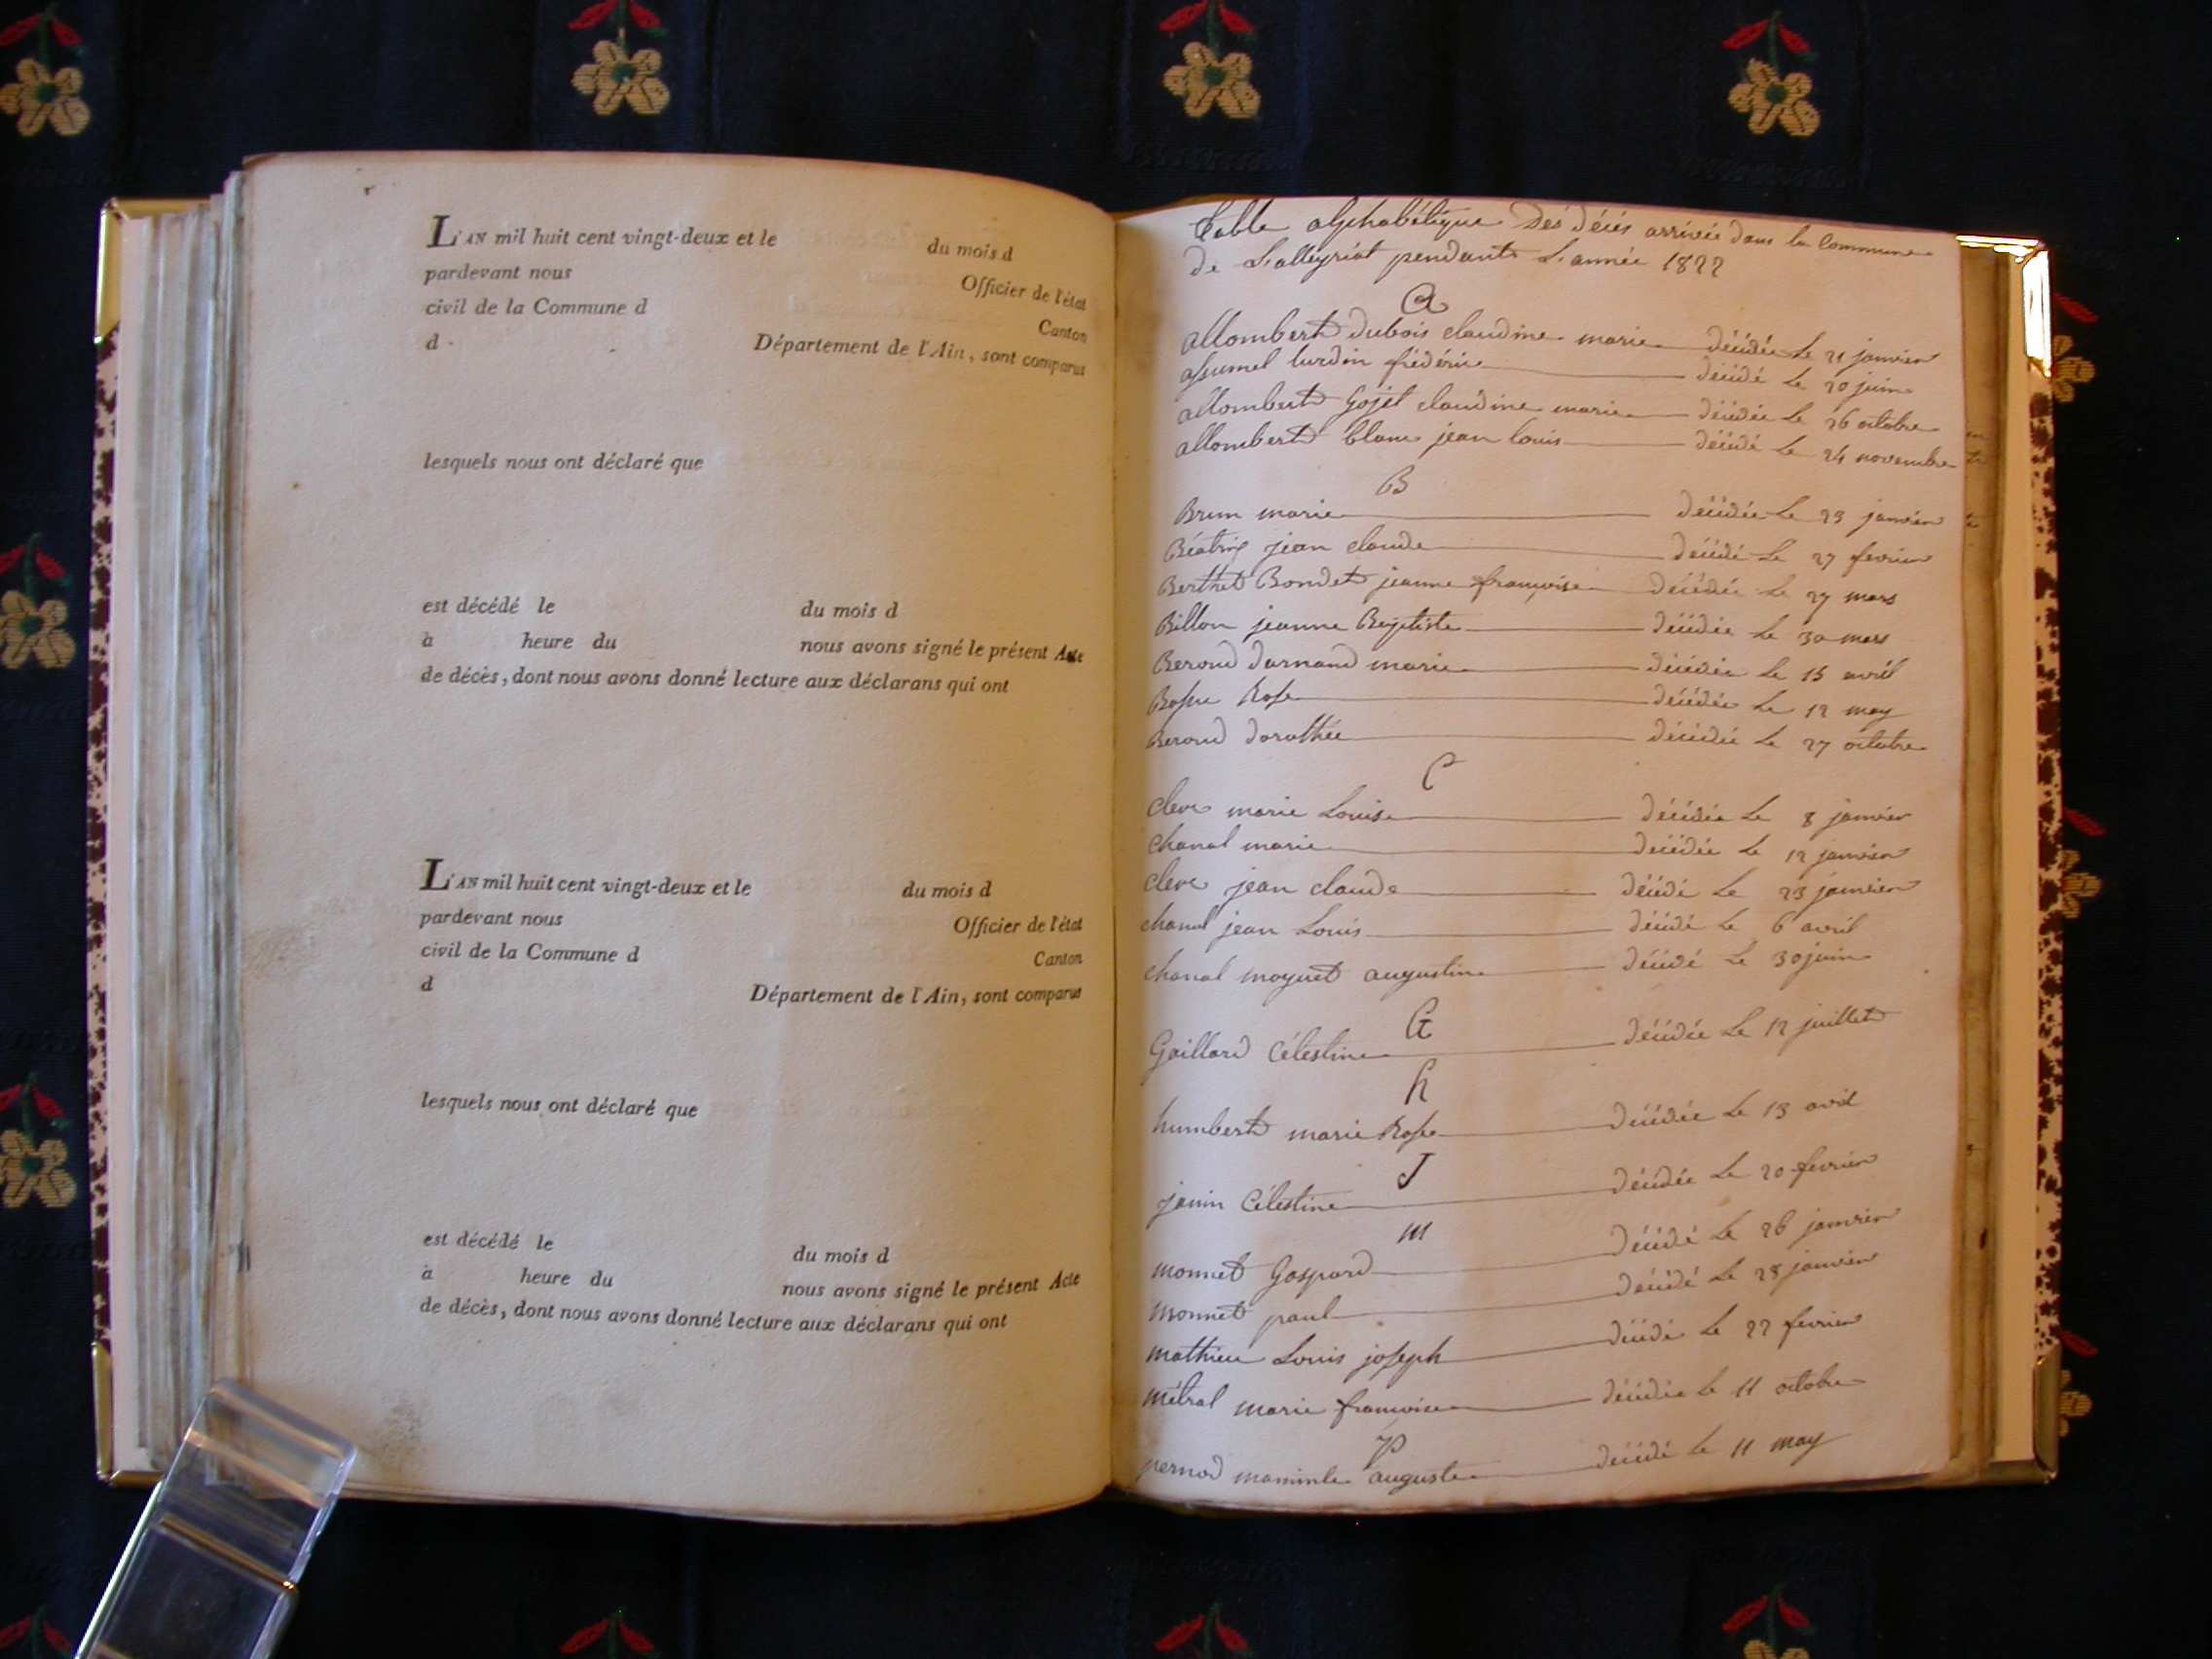 L'AN mil huit cent vingt-deux et le du mois d
pardevant nous Officier de l'état
civil de la Commune d Canton
d Département de l'Ain, sont comparus
lesquels nous ont déclaré que
est décédé le du mois d
à heure du nous avons signé le présent Acte
de décès, dont nous avons donné lecture aux déclarans qui ont
L'AN mil huit cent vingt-deux et le du mois d
pardevant nous Officier de l'état
civil de la Commune d Canton
d Département de l'Ain, sont comparus
lesquels nous ont déclaré que
est décédé le du mois d
à heure du nous avons signé le présent Acte
de décès, dont nous avons donné lecture aux déclarans qui ont
Table alphabétique Des décès arrivée dans la Commune
De Lalleyriat pendant L'année 1822
A
allombert dubois claudine marie décédée Le 21 janvier
assumel lurdin frédéric décédé Le 20 juin
allombert Gojet claudine marie décédée Le 26 octobre
allombert blanc jean louis décédé Le 24 novembre
B
Brun marie décédée Le 23 janvier
Béatrix jean claude décédé Le 27 fevrier
Berthet Bondet jeanne françoise décédée Le 27 mars
Billon jeanne Baptiste décédée Le 30 mars
Beroud darnand marie décédée Le 15 avril
Rose décédée Le 12 may
Beroud dorothée décédée Le 27 octobre
C
cleve marie Louise décédée Le 8 janvier
chanal marie décédée Le 12 janvier
cleve jean claude décédé Le 23 janvier
chanal jean Louis décédé Le 6 avril
chanal moguet augustin décédé Le 30 juin
G
Gaillard Célestine décédée Le 12 juillet
h
humbert marie Rose décédée Le 13 avril
J
janin Célestine décédée Le 20 fevrier
m
monnet Gaspard décédé Le 26 janvier
monnet paul décédé Le 28 janvier
mathieu Louis joseph décédé Le 22 fevrier
métral marie francoise décédée Le 11 octobre
P
pernod auguste décédé Le 11 may